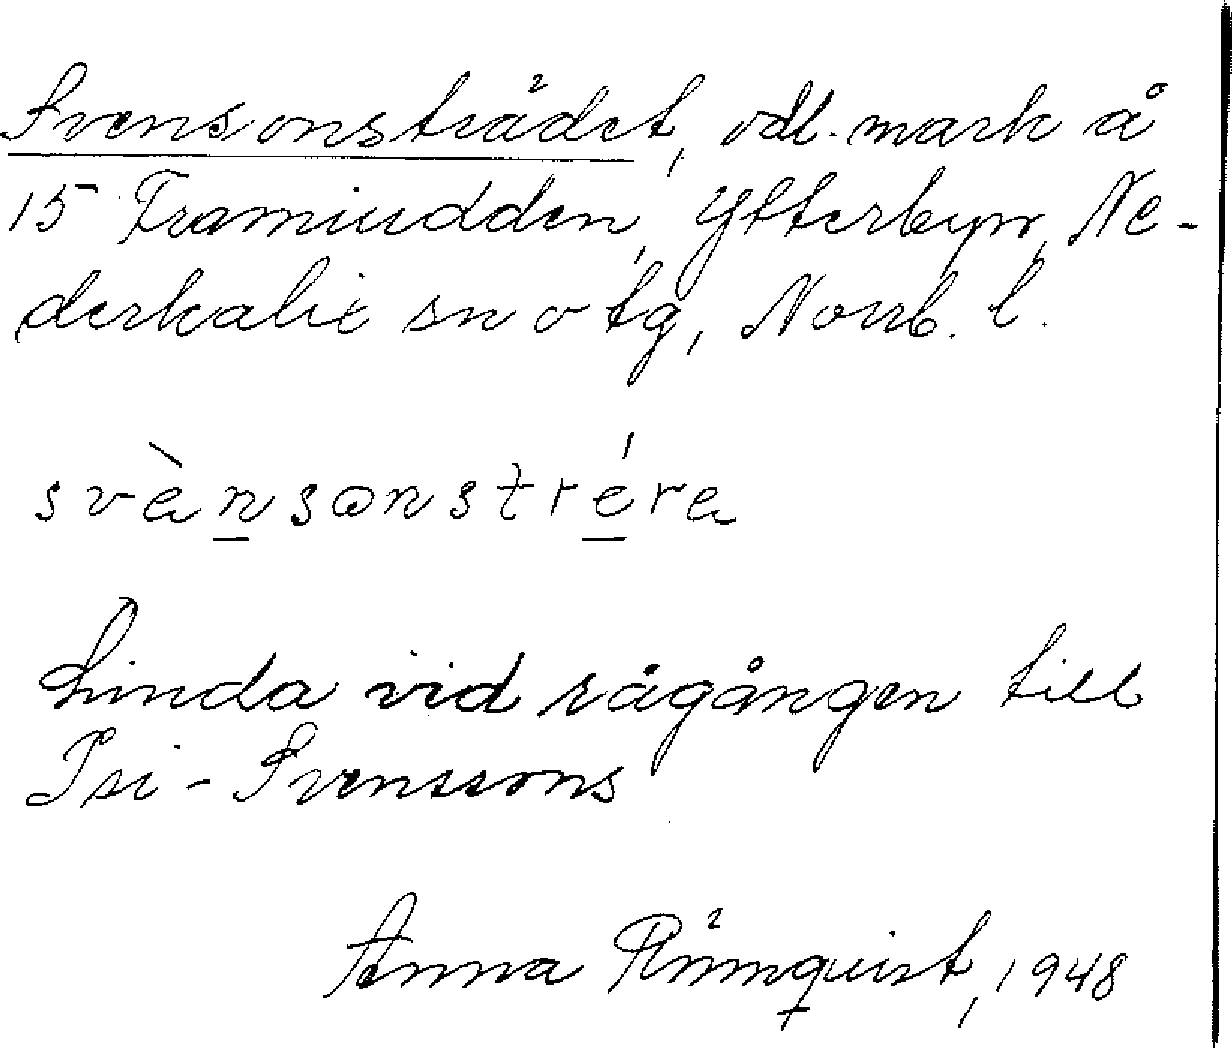 Svensonsträdet, odl. mark å
15 Framiudden, Ytterbyn, Ne-
derkalix sn o tg, Norrb. l.
svènsonstréra
Linda vid rågången till
Psi-Svenssons
Anna Rönnquist, 1948